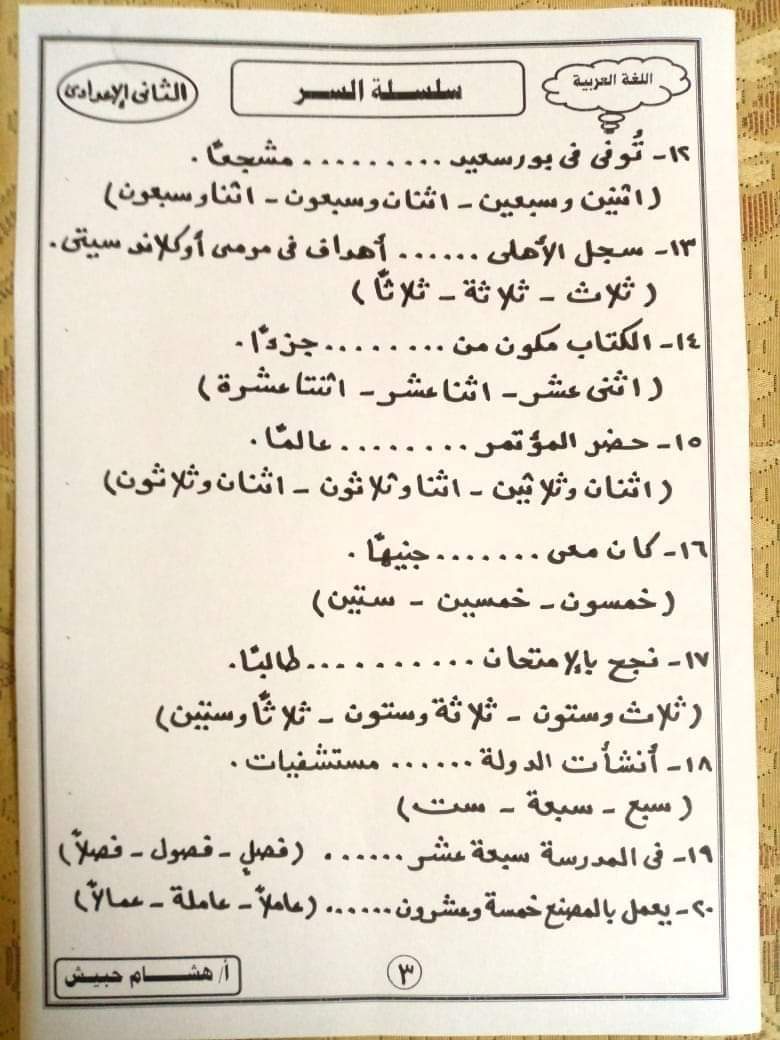 اللغة العربية
سلسلة السر
الثانى الإعدادى
١٢- تُوفى فى بورسعيد ......... مشجعًا.
(اثنين وسبعين - اثنان وسبعون - اثنا وسبعون)
١٣- سجل الأهلى ...... أهداف فى مرمى أوكلاند سيتى.
(ثلاث - ثلاثة - ثلاثًا)
١٤- الكتاب مكون من ........ جزءًا.
(اثنى عشر - اثنا عشر - اثنتا عشرة)
١٥- حضر المؤتمر ........ عالمًا.
(اثنان وثلاثين - اثنا وثلاثون - اثنان وثلاثون)
١٦- كان معى ....... جنيهًا.
(خمسون - خمسين - ستين)
١٧- نجح بالإمتحان .......... طالبًا.
(ثلاث وستون - ثلاثة وستون - ثلاثًا وستين)
١٨- أنشأت الدولة ...... مستشفيات.
(سبع - سبعة - ست)
١٩- فى المدرسة سبعة عشر ...... (فصلٍ - فصول - فصلاً)
٢٠- يعمل بالمصنع خمسة وعشرون ...... (عاملاً - عاملة - عمالاً)
٣
أ/ هشام حبيش